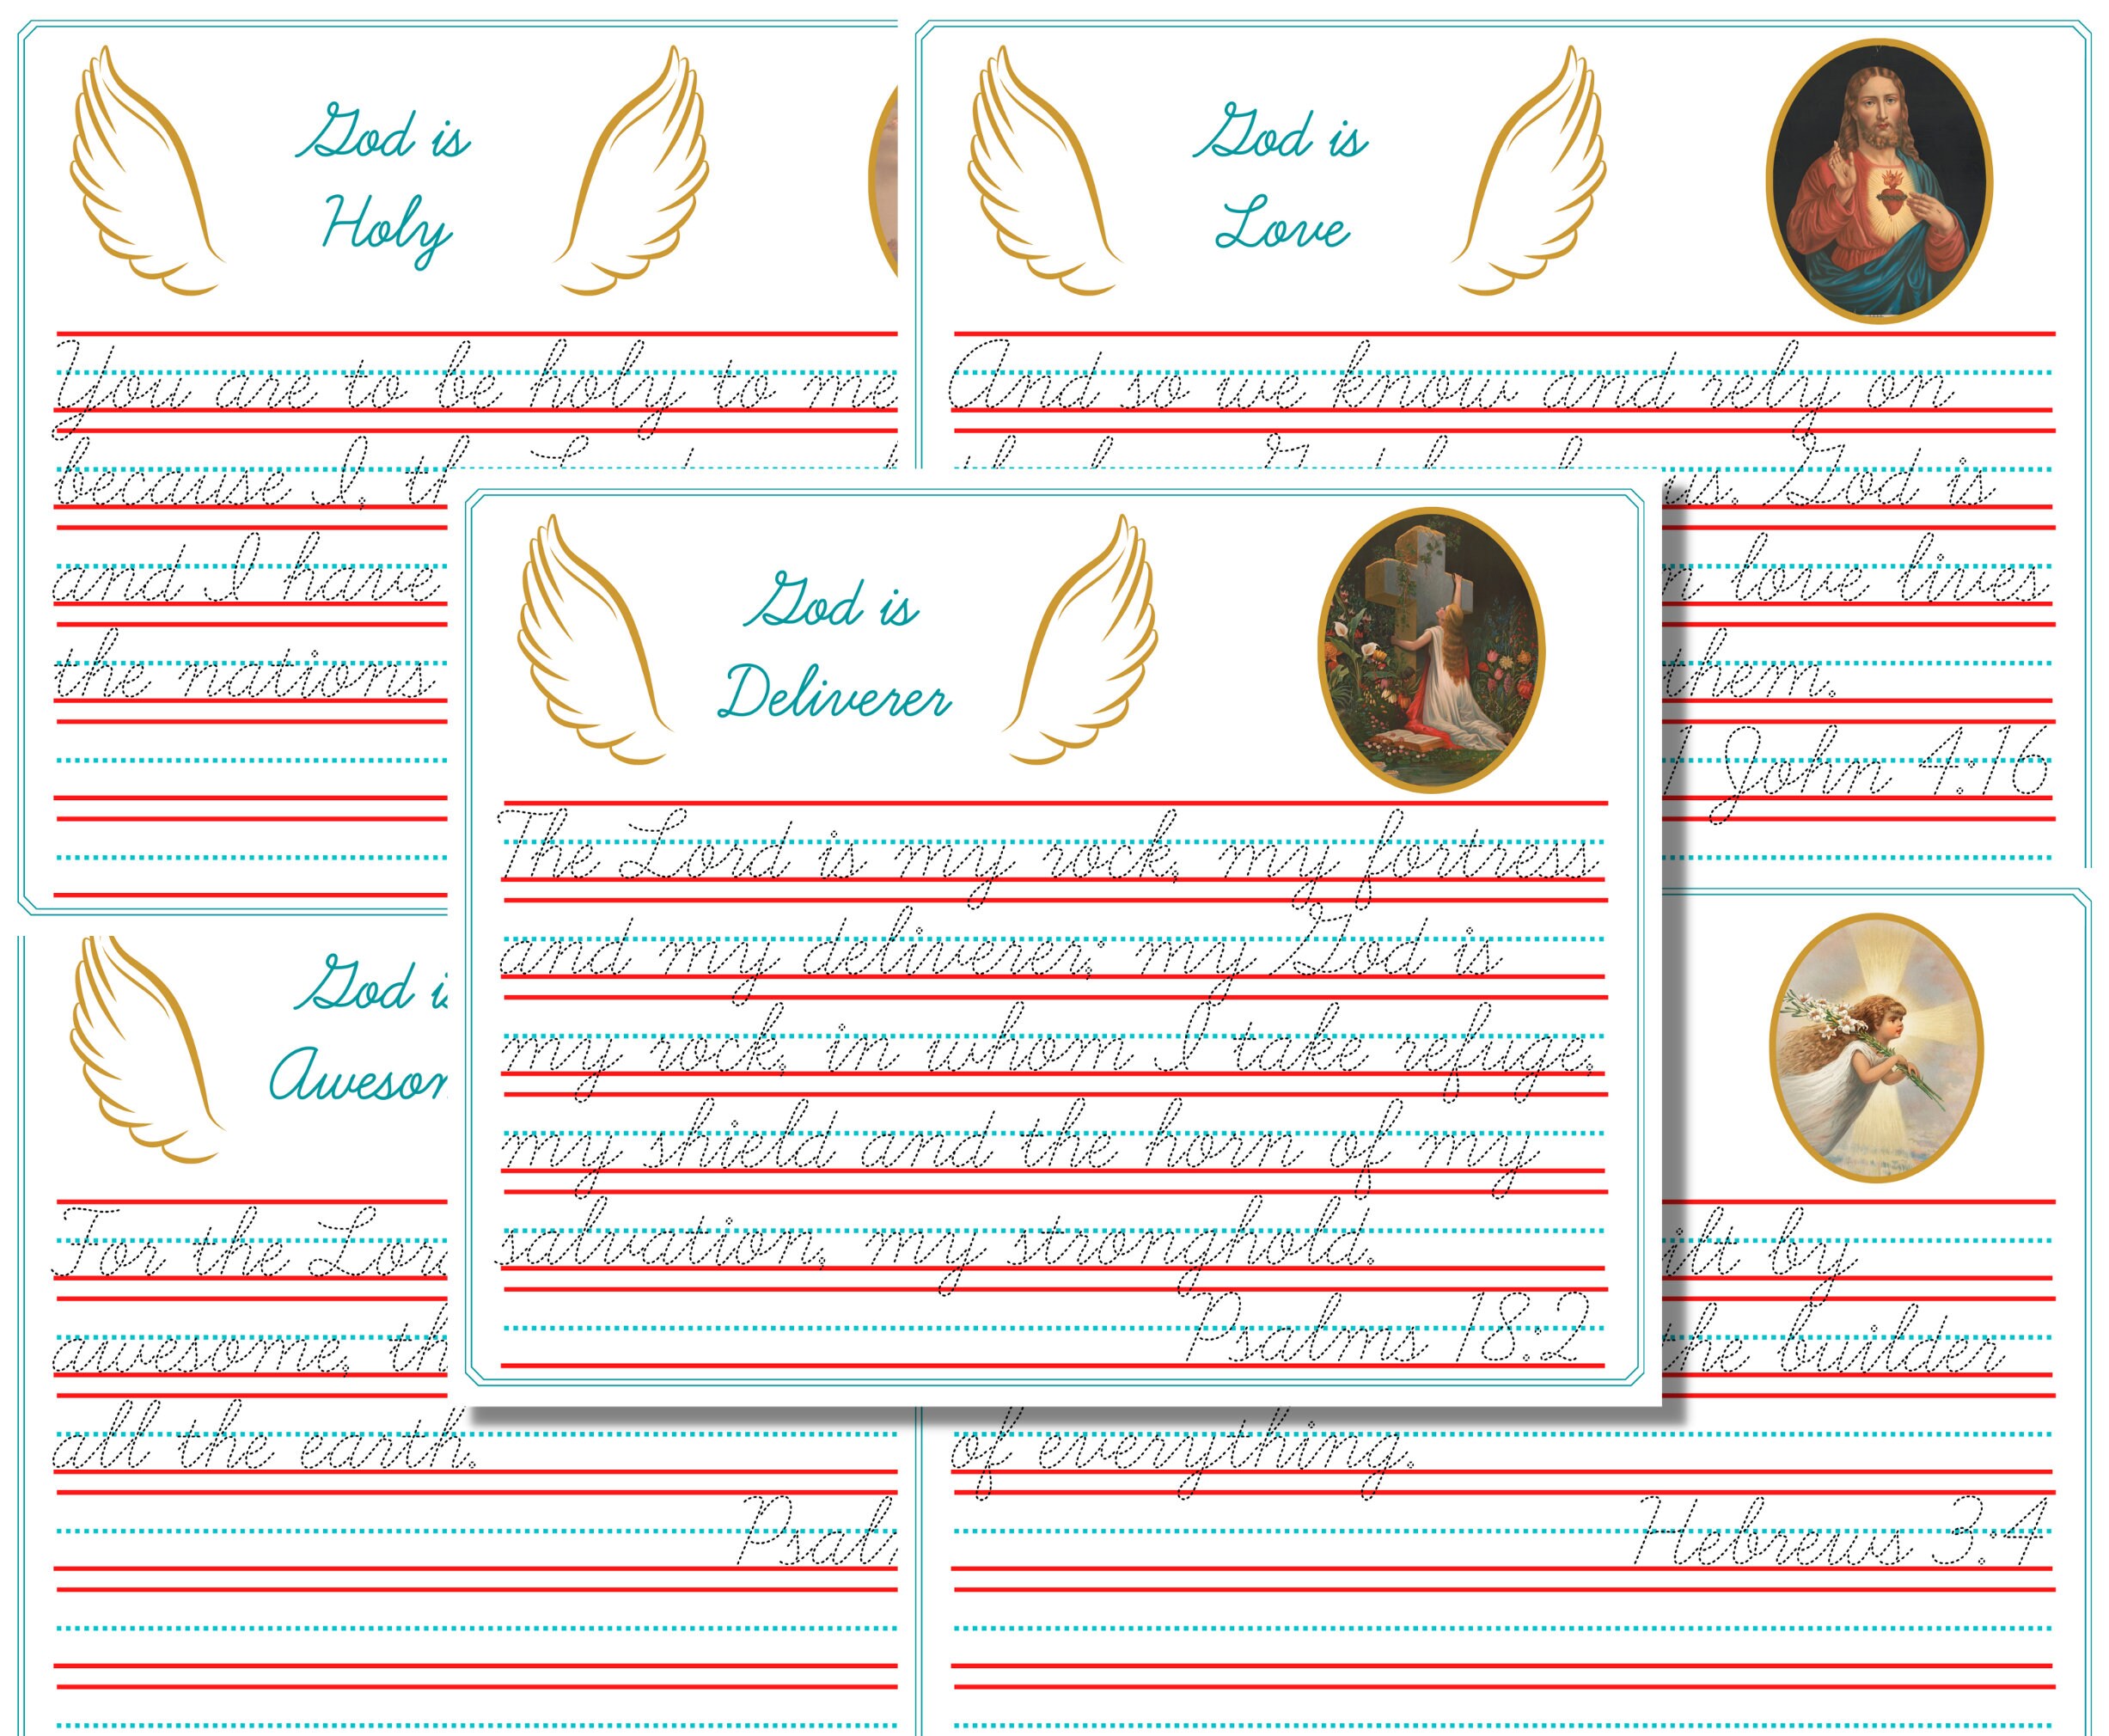 God is
Holy
You are to be holy to me
because I, th
and I have
the nations
God is
Love
And so we know and rely on
us. God is
love lives
them.
1 John 4:16
God is
Deliverer
The Lord is my rock, my fortress
and my deliverer; my God is
my rock, in whom I take refuge,
my shield and the horn of my
salvation, my stronghold.
Psalms 18:2
God is
Awesom
For the Lor
awesome, th
all the earth.
Psal
ilt by
the builder
of everything.
Hebrews 3:4